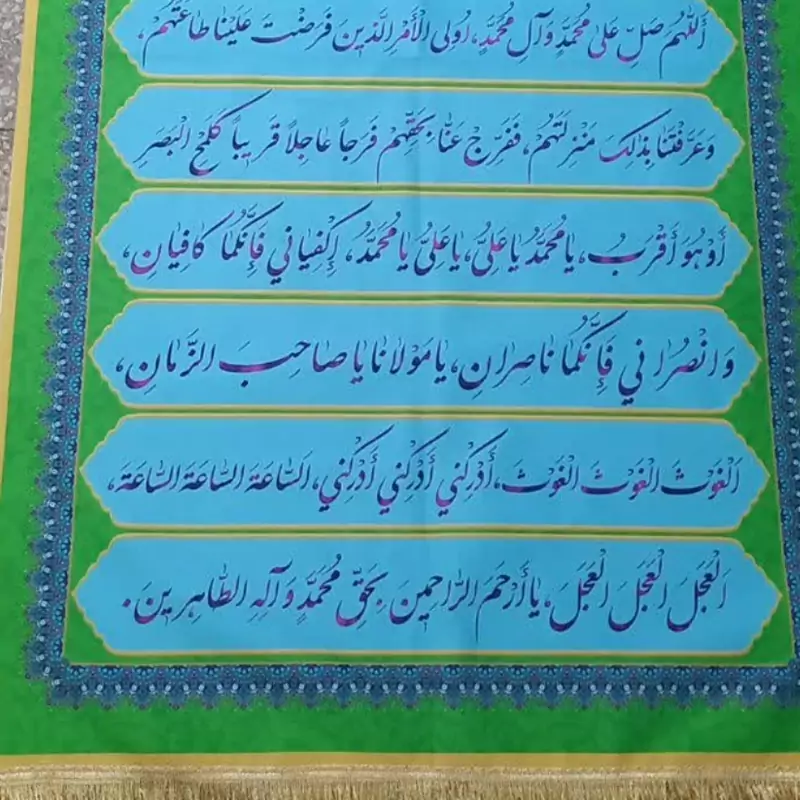 اَللّٰهُمَّ صَلِّ عَلٰی مُحَمَّدٍ وَآلِ مُحَمَّدٍ، اُولِی الْاَمْرِ الَّذِینَ فَرَضْتَ عَلَیْنٰا طٰاعَتَهُمْ،
وَعَرَّفْتَنٰا بِذٰلِکَ مَنْزِلَتَهُمْ، فَفَرِّجْ عَنّٰا بِحَقِّهِمْ فَرَجاً عٰاجِلاً قَرِیباً کَلَمْحِ الْبَصَرِ
أَوْ هُوَ أَقْرَبُ، یٰا مُحَمَّدُ یٰا عَلِیُّ، یٰا عَلِیُّ یٰا مُحَمَّدُ، إِکْفِیٰانِی فَإِنَّکُمٰا کٰافِیٰانِ،
وَانْصُرٰانِی فَإِنَّکُمٰا نٰاصِرٰانِ، یٰا مَوْلٰانٰا یٰا صٰاحِبَ الزَّمٰانِ،
اَلْغَوْثَ الْغَوْثَ الْغَوْثَ، أَدْرِکْنِی أَدْرِکْنِی أَدْرِکْنِی، اَلسّٰاعَةَ السّٰاعَةَ السّٰاعَةَ،
اَلْعَجَلَ الْعَجَلَ الْعَجَلَ، یٰا أَرْحَمَ الرّٰاحِمِینَ بِحَقِّ مُحَمَّدٍ وَآلِهِ الطّٰاهِرِینَ.